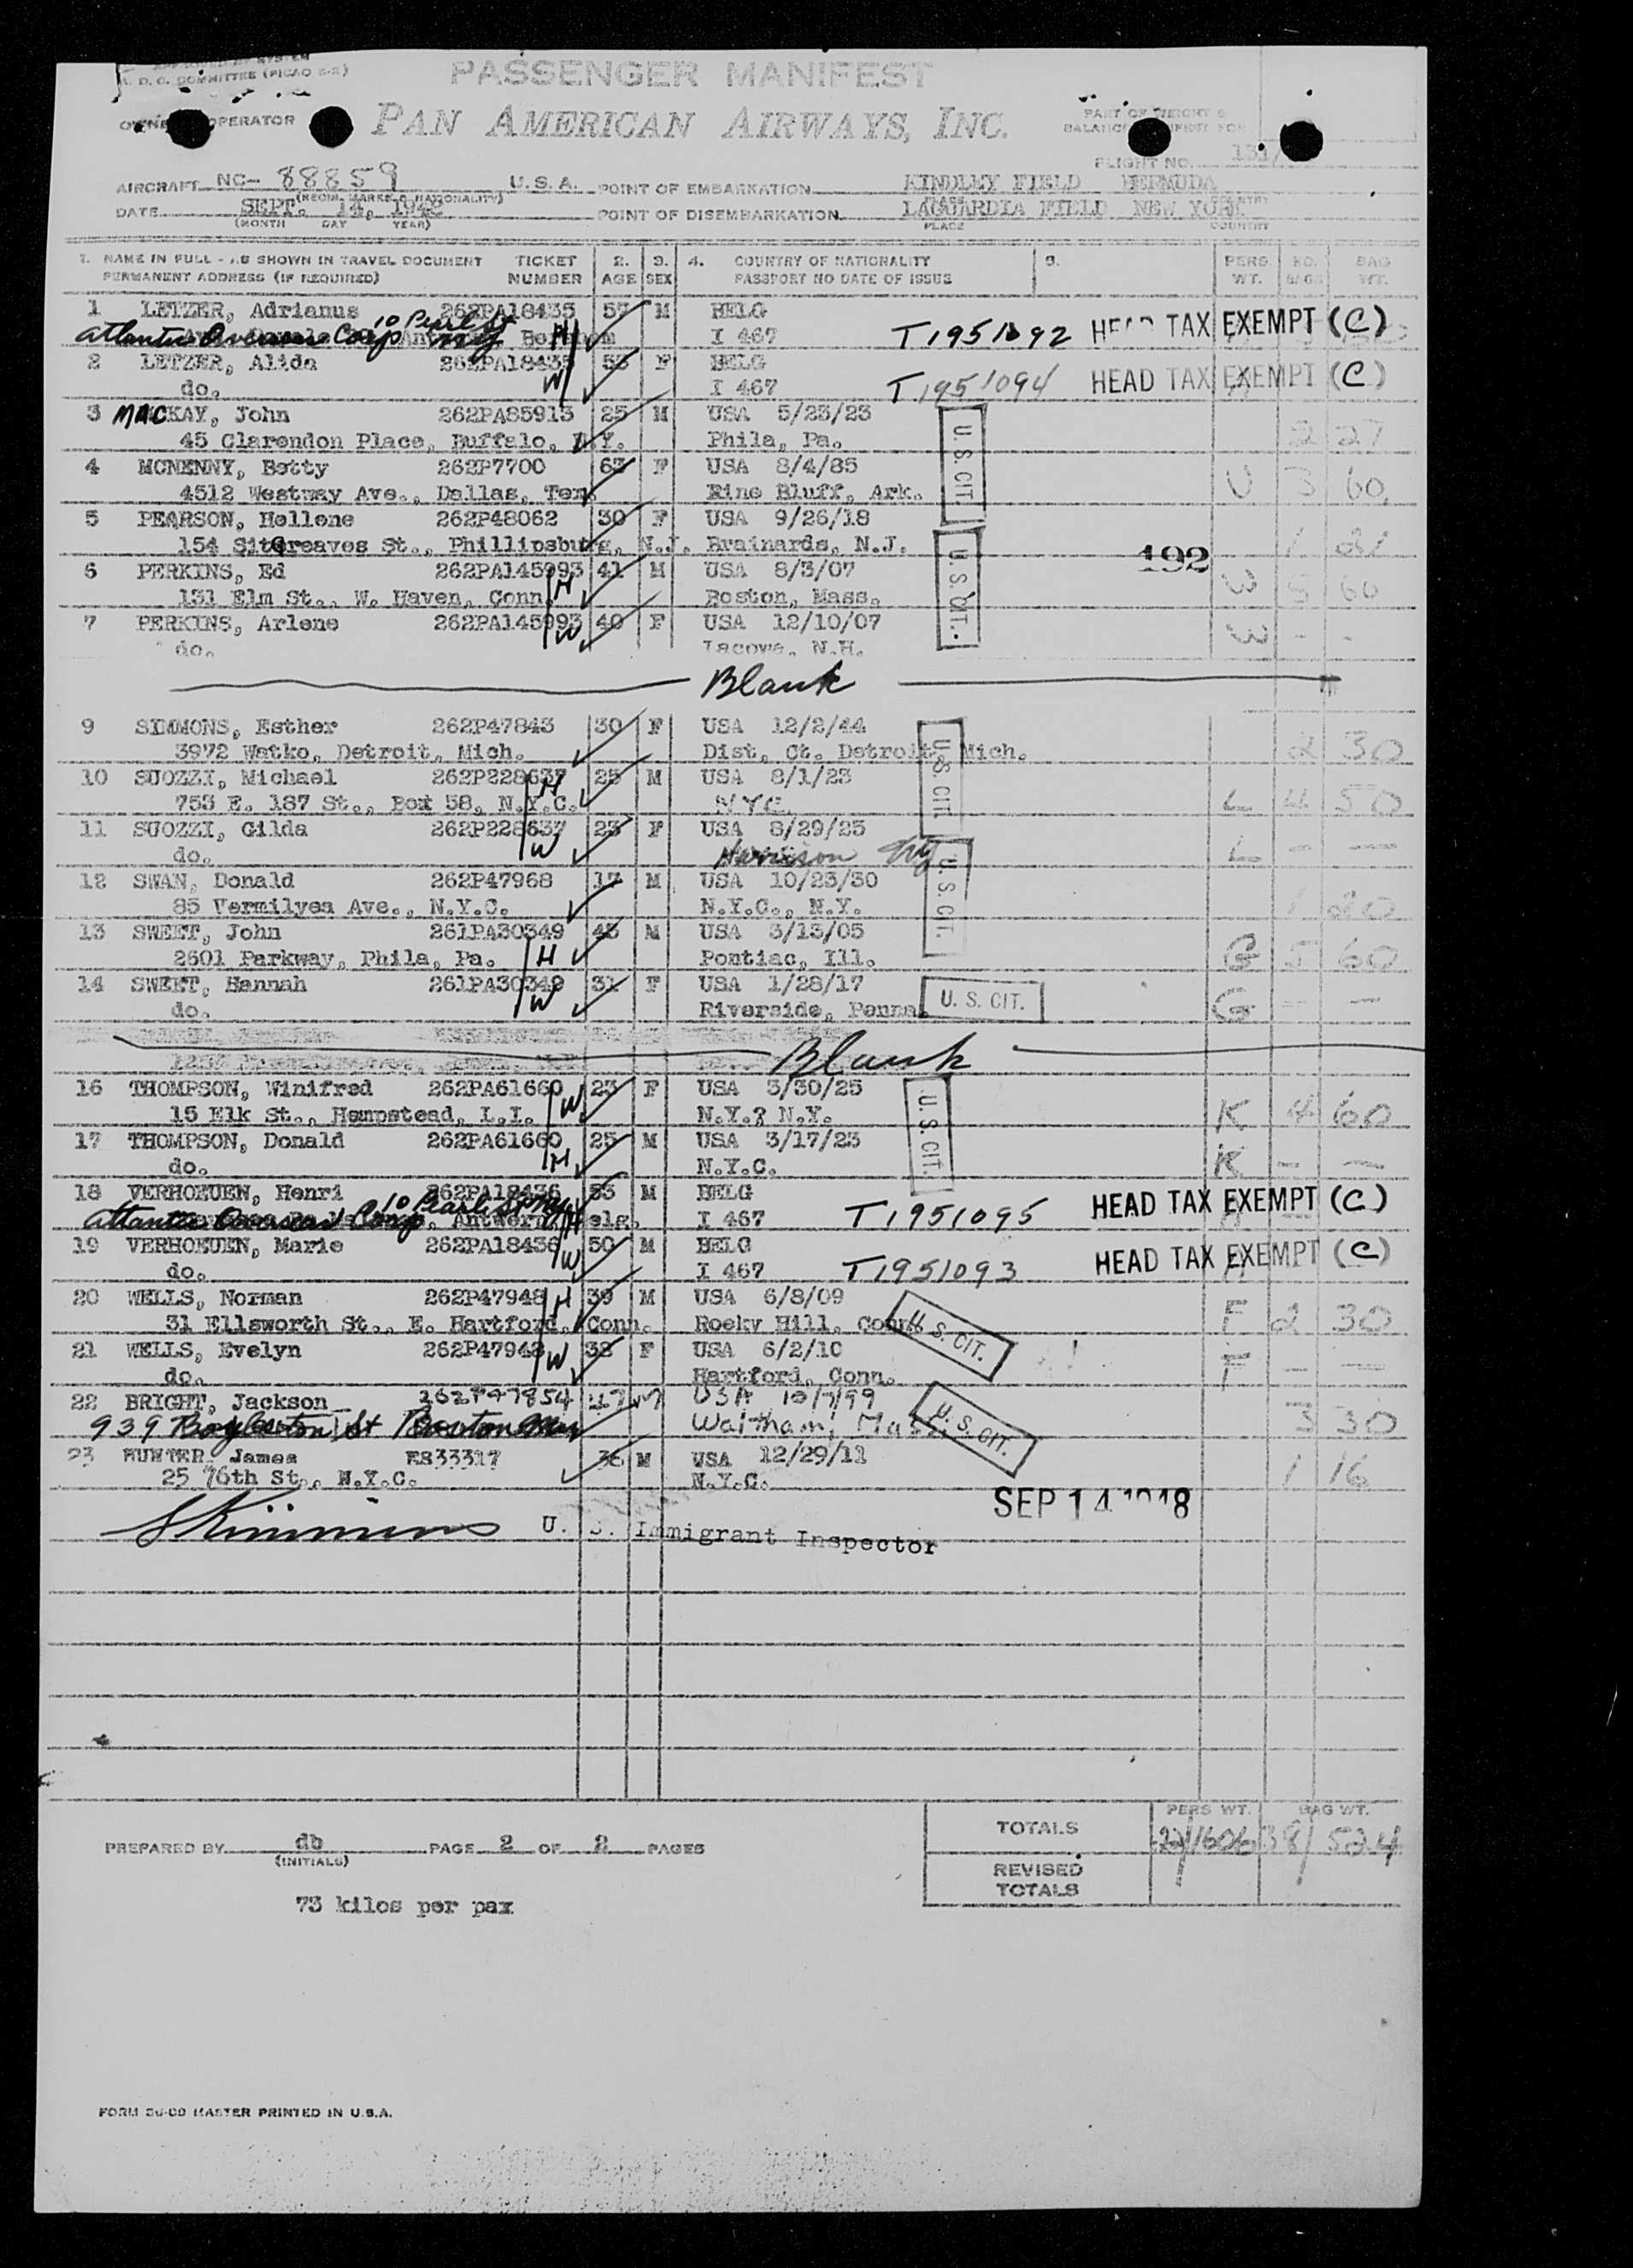 I. D. C. COMMITTEE (PICAO 2-2)
PASSENGER MANIFEST
OPERATOR
PAN AMERICAN AIRWAYS, INC.
PART OF WEIGHT &
BALANCE
FLIGHT NO. 131/
AIRCRAFT NC- 88859 U.S.A. POINT OF EMBARKATION KINDLEY FIELD BERMUDA
(REGIN. MARKS & NATIONALITY)
DATE SEPT. 14, 1948 POINT OF DISEMBARKATION LAGUARDIA FIELD NEW YORK
(MONTH DAY YEAR) PLACE COUNTRY
1. NAME IN FULL - AS SHOWN IN TRAVEL DOCUMENT TICKET 2. 3. 4. COUNTRY OF NATIONALITY 5. PERS NO. BAG
PERMANENT ADDRESS (IF REQUIRED) NUMBER AGE SEX PASSPORT NO DATE OF ISSUE WT. BAGS WT.
1 LETZER, Adrianus 262PA18435 57 M BELG
Atlantic Overseas Corp 10 Pearl St NY H I 467 T1951092 HEAD TAX EXEMPT (C)
2 LETZER, Alida 262PA18435 53 F BELG
do. W I 467 T1951094 HEAD TAX EXEMPT (C)
3 MACKAY, John 262PA85913 25 M USA 5/23/23
45 Clarendon Place, Buffalo, N.Y. Phila, Pa. 2 27
U. S. CIT.
4 MCNENNY, Betty 262P7700 63 F USA 8/4/85
4512 Westway Ave., Dallas, Tex. Pine Bluff, Ark. U 3 60
5 PEARSON, Hellene 262P48062 30 F USA 9/26/18
154 SitGreaves St., Phillipsburg, N.J. Brainards, N.J. 192 1 21
U. S. CIT.
6 PERKINS, Ed 262PA145993 41 M USA 8/3/07
131 Elm St., W. Haven, Conn H Boston, Mass. 3 5 60
7 PERKINS, Arlene 262PA145993 40 F USA 12/10/07
do. W Lacowe, N.H. 3 - -
Blank
9 SIMMONS, Esther 262P47843 30 F USA 12/2/44
3972 Watko, Detroit, Mich. Dist. Ct. Detroit, Mich. 2 30
U. S. CIT.
10 SUOZZI, Michael 262P228637 25 M USA 8/1/23
753 E. 187 St., Box 58, N.Y.C. H NYC L 4 50
11 SUOZZI, Gilda 262P228637 23 F USA 8/29/25
do. W Harrison NY L - -
U. S. CIT.
12 SWAN, Donald 262P47968 17 M USA 10/23/30
85 Vermilyea Ave., N.Y.C. N.Y.C., N.Y. 1 20
13 SWEET, John 261PA30349 43 M USA 3/13/05
2601 Parkway, Phila, Pa. H Pontiac, Ill. G 5 60
14 SWEET, Hannah 261PA30349 31 F USA 1/28/17
do. W Riverside, Penna. U. S. CIT. G - -
Blank
16 THOMPSON, Winifred 262PA61660 23 F USA 3/30/25
15 Elk St., Hempstead, L.I. W N.Y., N.Y. K 4 60
U. S. CIT.
17 THOMPSON, Donald 262PA61660 25 M USA 3/17/23
do. H N.Y.C. K - -
18 VERHOEUEN, Henri 262PA18436 53 M BELG
Atlantic Overseas Corp 10 Pearl St NY, Antwerp, Belg. H I 467 T1951095 HEAD TAX EXEMPT (C)
19 VERHOEUEN, Marie 262PA18436 50 M BELG
do. W I 467 T1951093 HEAD TAX EXEMPT (C)
20 WELLS, Norman 262P47948 H 39 M USA 6/8/09
31 Ellsworth St., E. Hartford, Conn. Rocky Hill, Conn. U. S. CIT. F 2 30
21 WELLS, Evelyn 262P47948 W 38 F USA 6/2/10
do. Hartford, Conn. F - -
22 BRIGHT, Jackson 262P47854 47 M USA 10/7/99
939 Boylston St Boston Mass Waltham, Mass. U. S. CIT. 3 30
23 HUNTER, James ES33317 36 M USA 12/29/11
25 76th St., N.Y.C. N.Y.C. 1 16
SEP 14 1948
U. S. Immigrant Inspector
TOTALS PERS WT. BAG WT.
22/1606 38/524
PREPARED BY db PAGE 2 OF 2 PAGES
(INITIALS)
REVISED
TOTALS
73 kilos per pax
FORM MASTER PRINTED IN U.S.A.